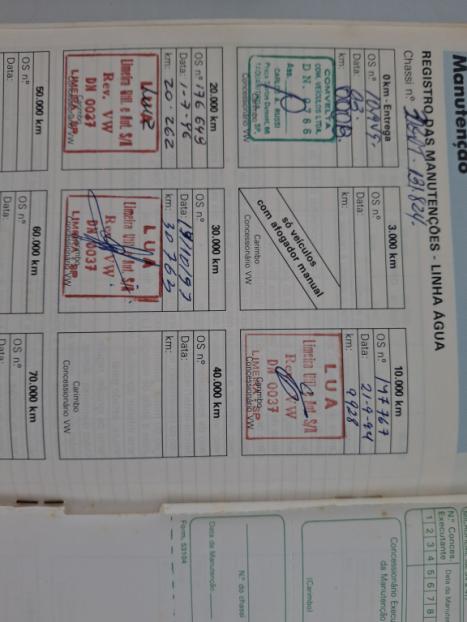 Manutenção
REGISTRO DAS MANUTENÇÕES - LINHA ÁGUA
Chassi nº
0 km - Entrega
OS nº
Data:
km:
COMVELTA
COM. VEÍCULOS LTDA.
Ass.
Concessionário VW
3.000 km
OS nº
Data:
km:
só veículos
com afogador manual
Carimbo
Concessionário VW
10.000 km
OS nº 147767
Data: 21-9-94
km: 9928
LUA
Limeira Util. e Aut. S/A
Rev. VW
DN 0037
LIMEIRA-SP
Concessionário VW
20.000 km
OS nº 176649
Data: 1-7-96
km: 20.262
LUA
Limeira Util. e Aut. S/A
Rev. VW
DN 0037
LIMEIRA-SP
Concessionário VW
30.000 km
OS nº
Data: /10/97
km: 30763
LUA
Limeira Util. e Aut. S/A
Rev. VW
DN 0037
LIMEIRA-SP
Concessionário VW
40.000 km
OS nº
Data:
km:
Carimbo
Concessionário VW
50.000 km
OS nº
Data:
60.000 km
OS nº
Data:
70.000 km
OS nº
Data:
Nº Conces.
Executante
Data da Manut
1 2 3 4 5 6 7 8
Concessionário Execu
da Manutenção
(Carimbo)
Nº do chassi
Data da Manutenção
Form. 53104